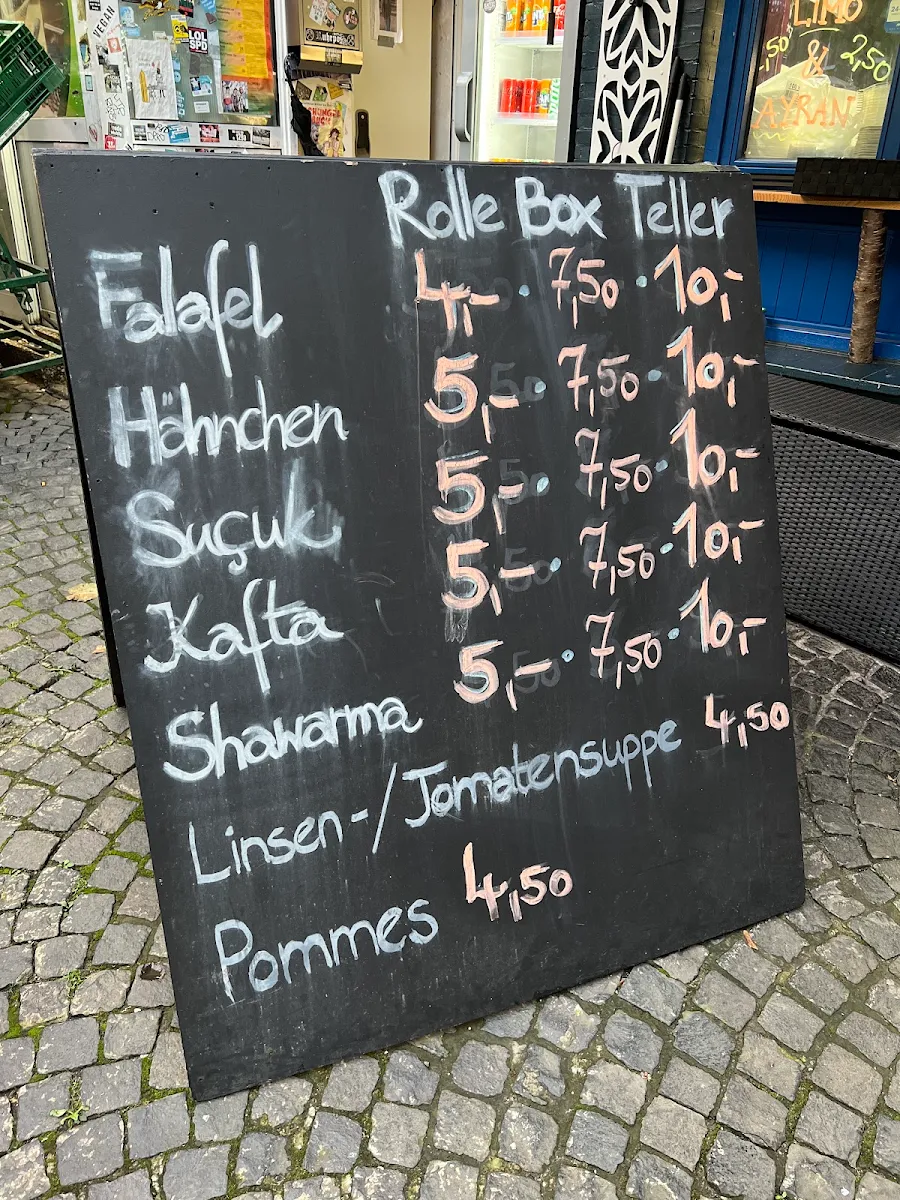 VEGAN
LOL
SPD
Ruhrpott
LIMO
& 2,50
AYRAN
Rolle Box Teller
Falafel 4,- · 7,50 · 10,-
Hähnchen 5,- · 7,50 · 10,-
Suçuk 5,- · 7,50 · 10,-
Kafta 5,- · 7,50 · 10,-
Shawarma 5,- · 7,50 · 10,-
Linsen-/Tomatensuppe 4,50
Pommes 4,50